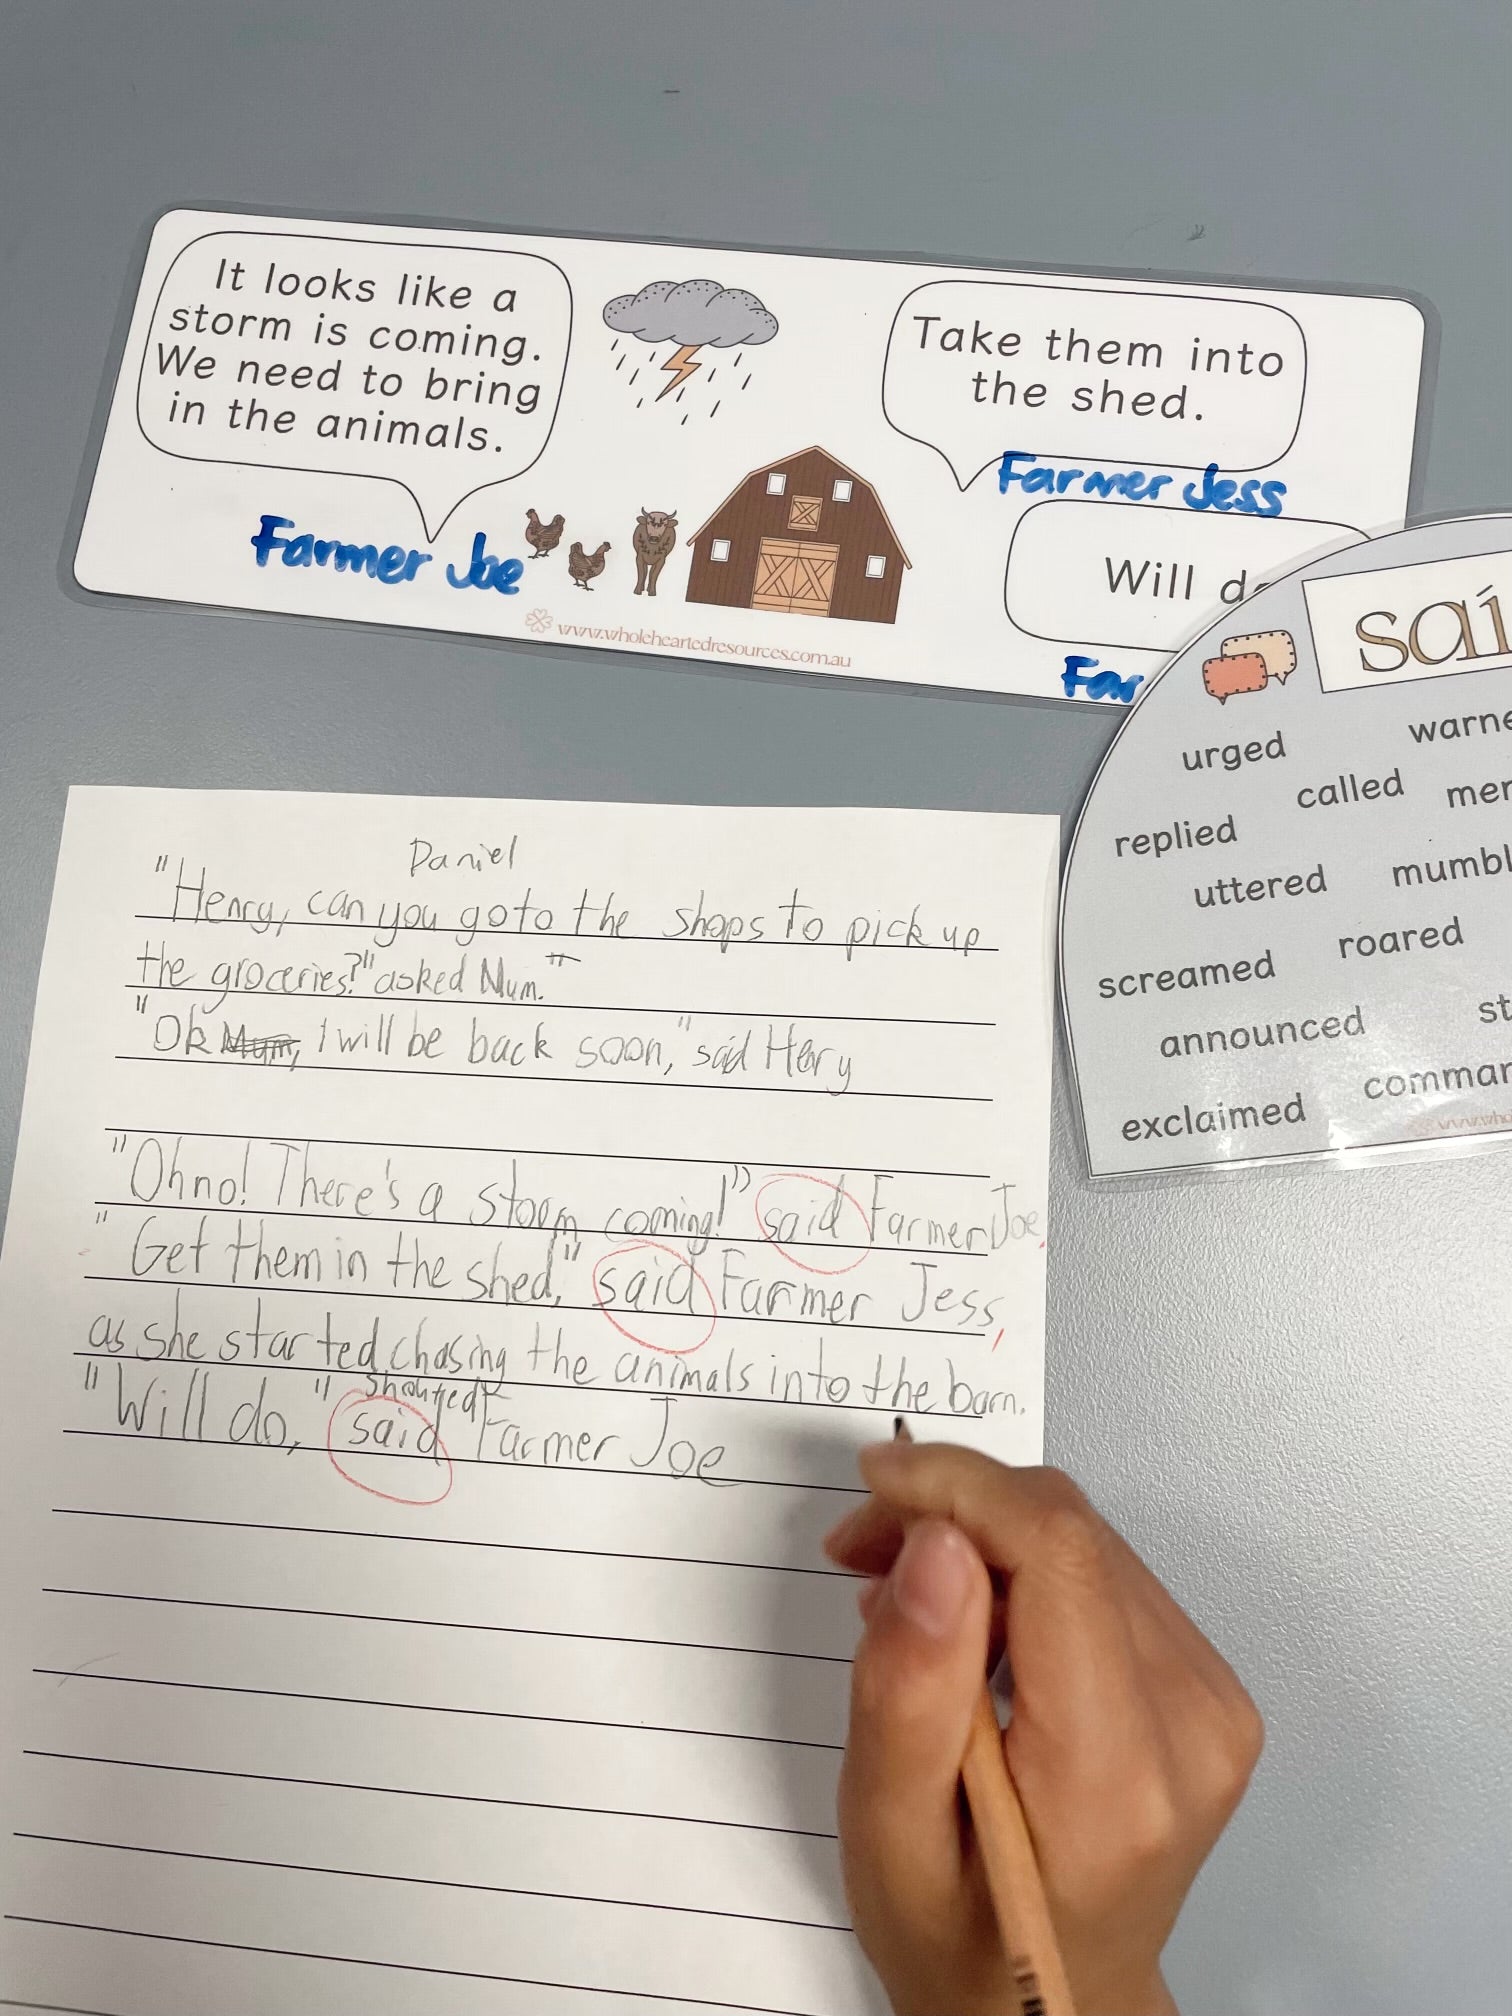 It looks like a
storm is coming.
We need to bring
in the animals.
Farmer Joe
Take them into
the shed.
Farmer Jess
Will
www.wholeheartedresources.com.au
urged
called
replied
uttered
screamed
roared
announced
exclaimed
Daniel
"Henry, can you go to the shops to pick up
the groceries?" asked Mum."
"Ok Mum, I will be back soon," said Henry
"Oh no! There's a storm coming!" said Farmer Joe,
"Get them in the shed," said Farmer Jess,
as she started chasing the animals into the barn.
shouted
"Will do," said Farmer Joe